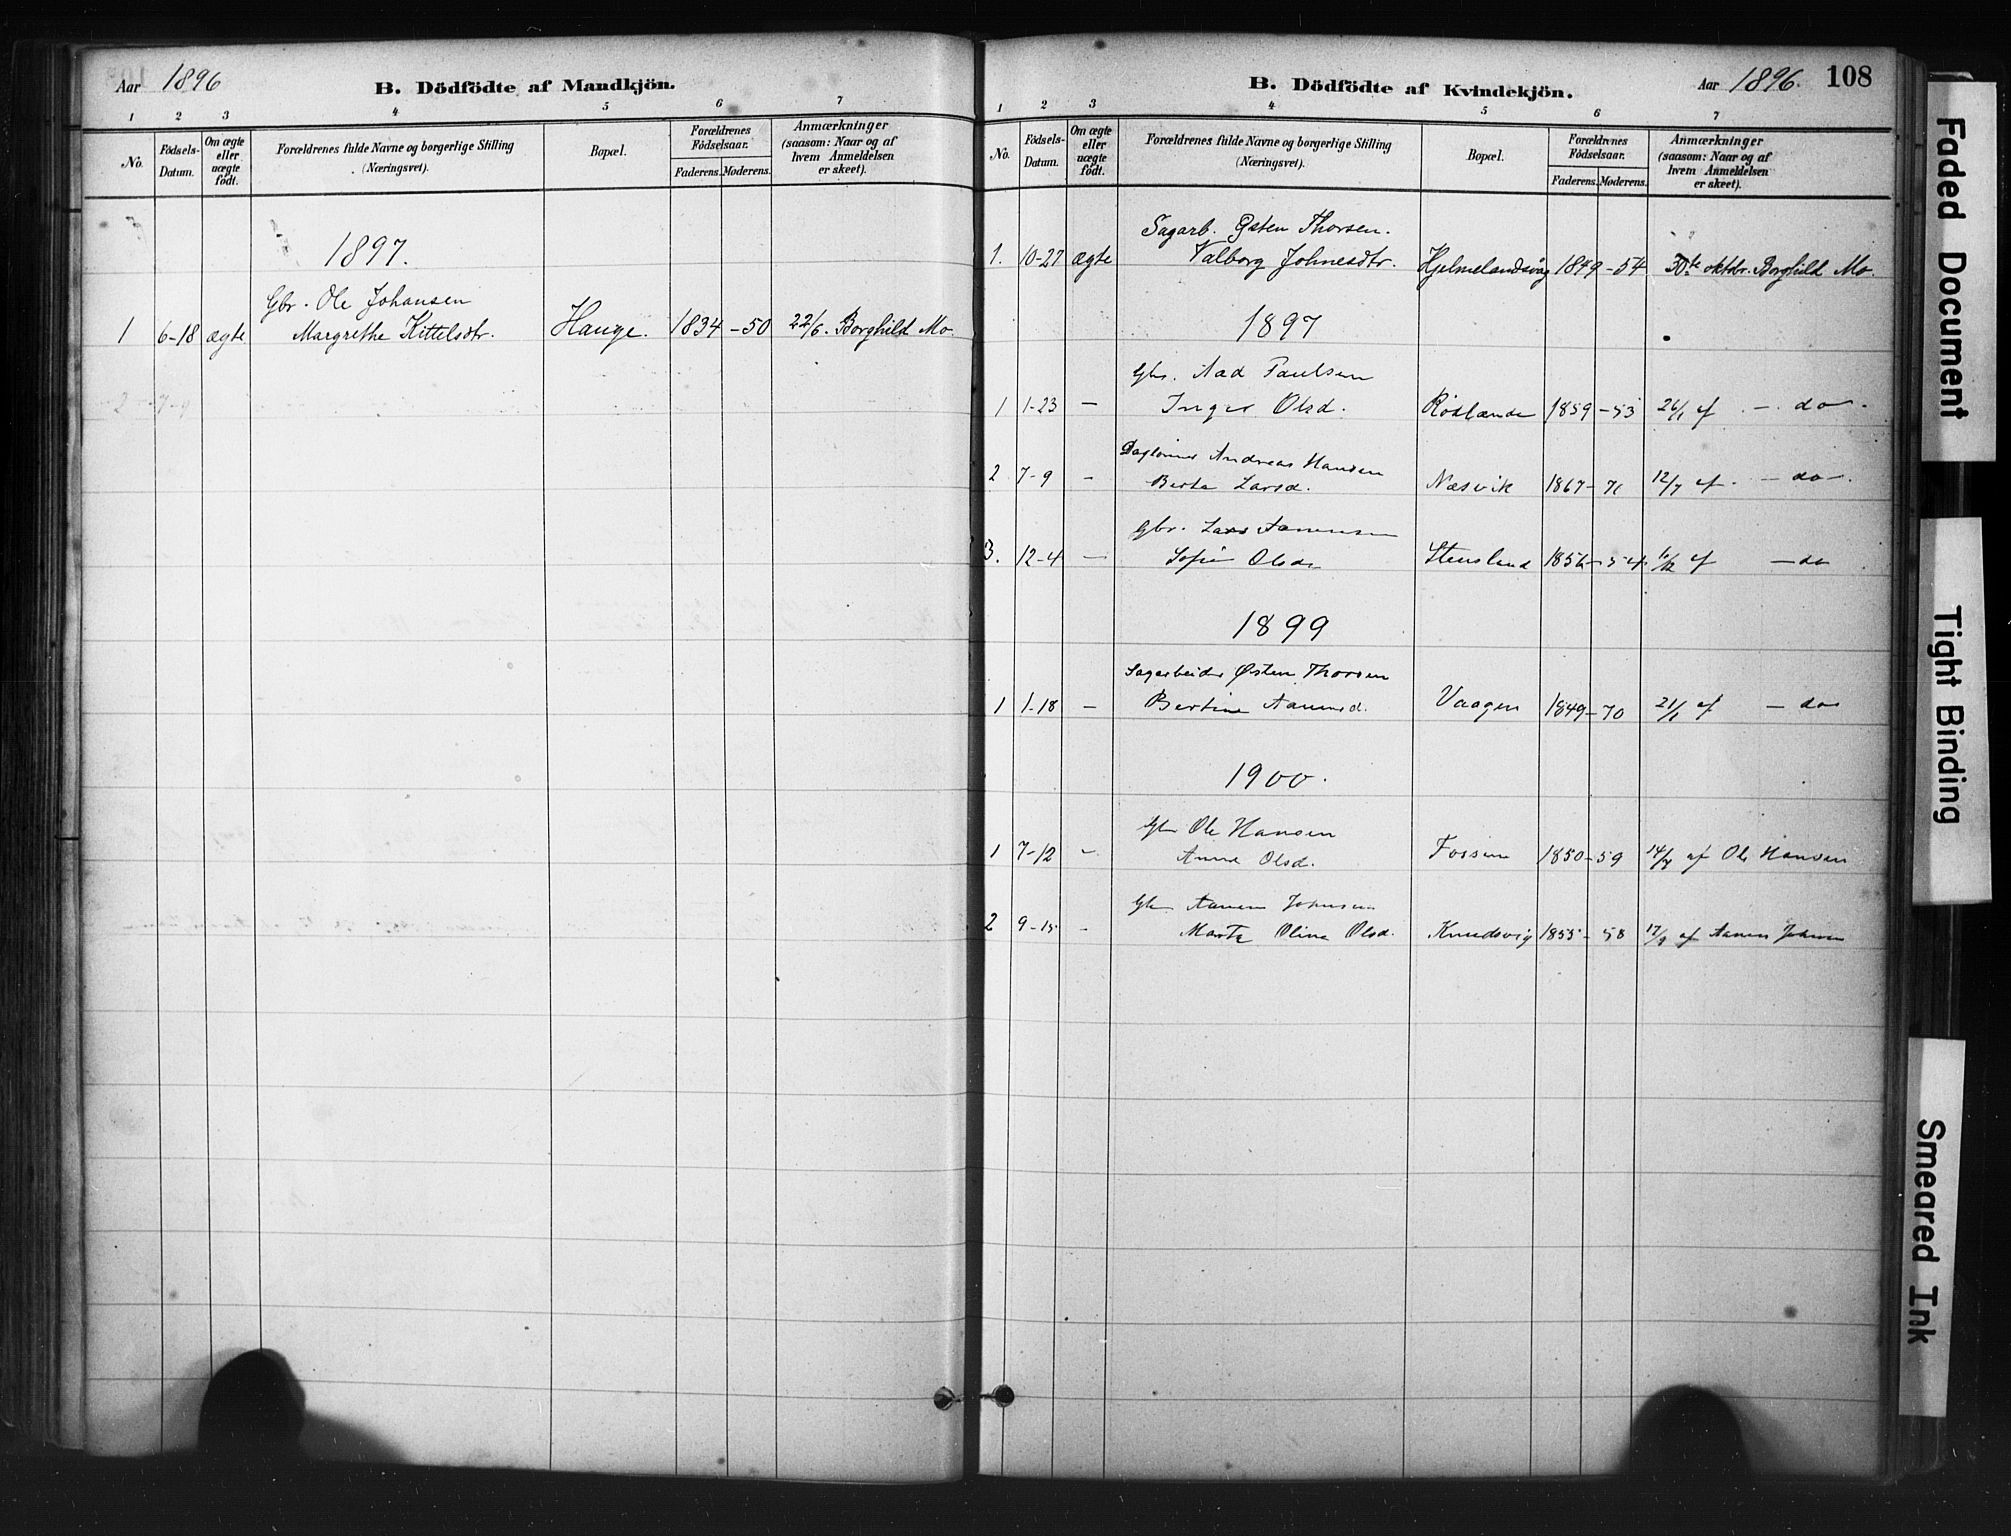 Aar 1896
B. Dödfödte af Mandkjön.
1 2 3 4 5 6 7
No.
Födsels-
Datum.
Om ægte
eller
uægte
födt.
Forældrenes fulde Navne og borgerlige Stilling
(Næringsvei).
Bopæl.
Forældrenes
Födselsaar.
Faderens. Moderens.
Anmærkninger
(saasom: Naar og af
hvem Anmeldelsen
er skeet).
1897.
Gbr. Ole Johansen
1 6-18 ægte Margrethe Kittelsdtr. Hauge. 1834 - 50 22/6. Borghild Mo.
2 7-9
B. Dödfödte af Kvindekjön.
Aar 1896. 108
1 2 3 4 5 6 7
No.
Födsels-
Datum.
Om ægte
eller
uægte
födt.
Forældrenes fulde Navne og borgerlige Stilling
(Næringsvei).
Bopæl.
Forældrenes
Födselsaar.
Faderens. Moderens.
Anmærkninger
(saasom: Naar og af
hvem Anmeldelsen
er skeet).
Sagarb. Østen Thorsen.
1. 10-27 ægte Valborg Johnesdtr. Hjelmelandsvåg 1849 - 54 30te oktbr. Borghild Mo.
1897
Gbr. Aad Paulsen
1 1-23 — Inger Olsd. 1859 - 53 26/1 af - do -
Andreas Hansen
2 7-9 - Berta Larsd. Næsvik 1867 - 71 12/7 af - do -.
Gbr. Lars
3. 12-4 — Sofie Olsd. Stensland 1856 - 54 af — do
1899
Sagarbeider Østen Thorsen
1 1-18 — Bertine Vaagen 1849 - 70 21/1 af — do
1900.
Gbr Ole Hansen
1 7-12 - Anna Olsd. Fossen 1850 - 59 14/7 af Ole Hansen
Gbr
2 9-15 - Marta Olina Olsd. Knudsvig 1855 - 58 17/9 af
Faded Document
Tight Binding
Smeared Ink